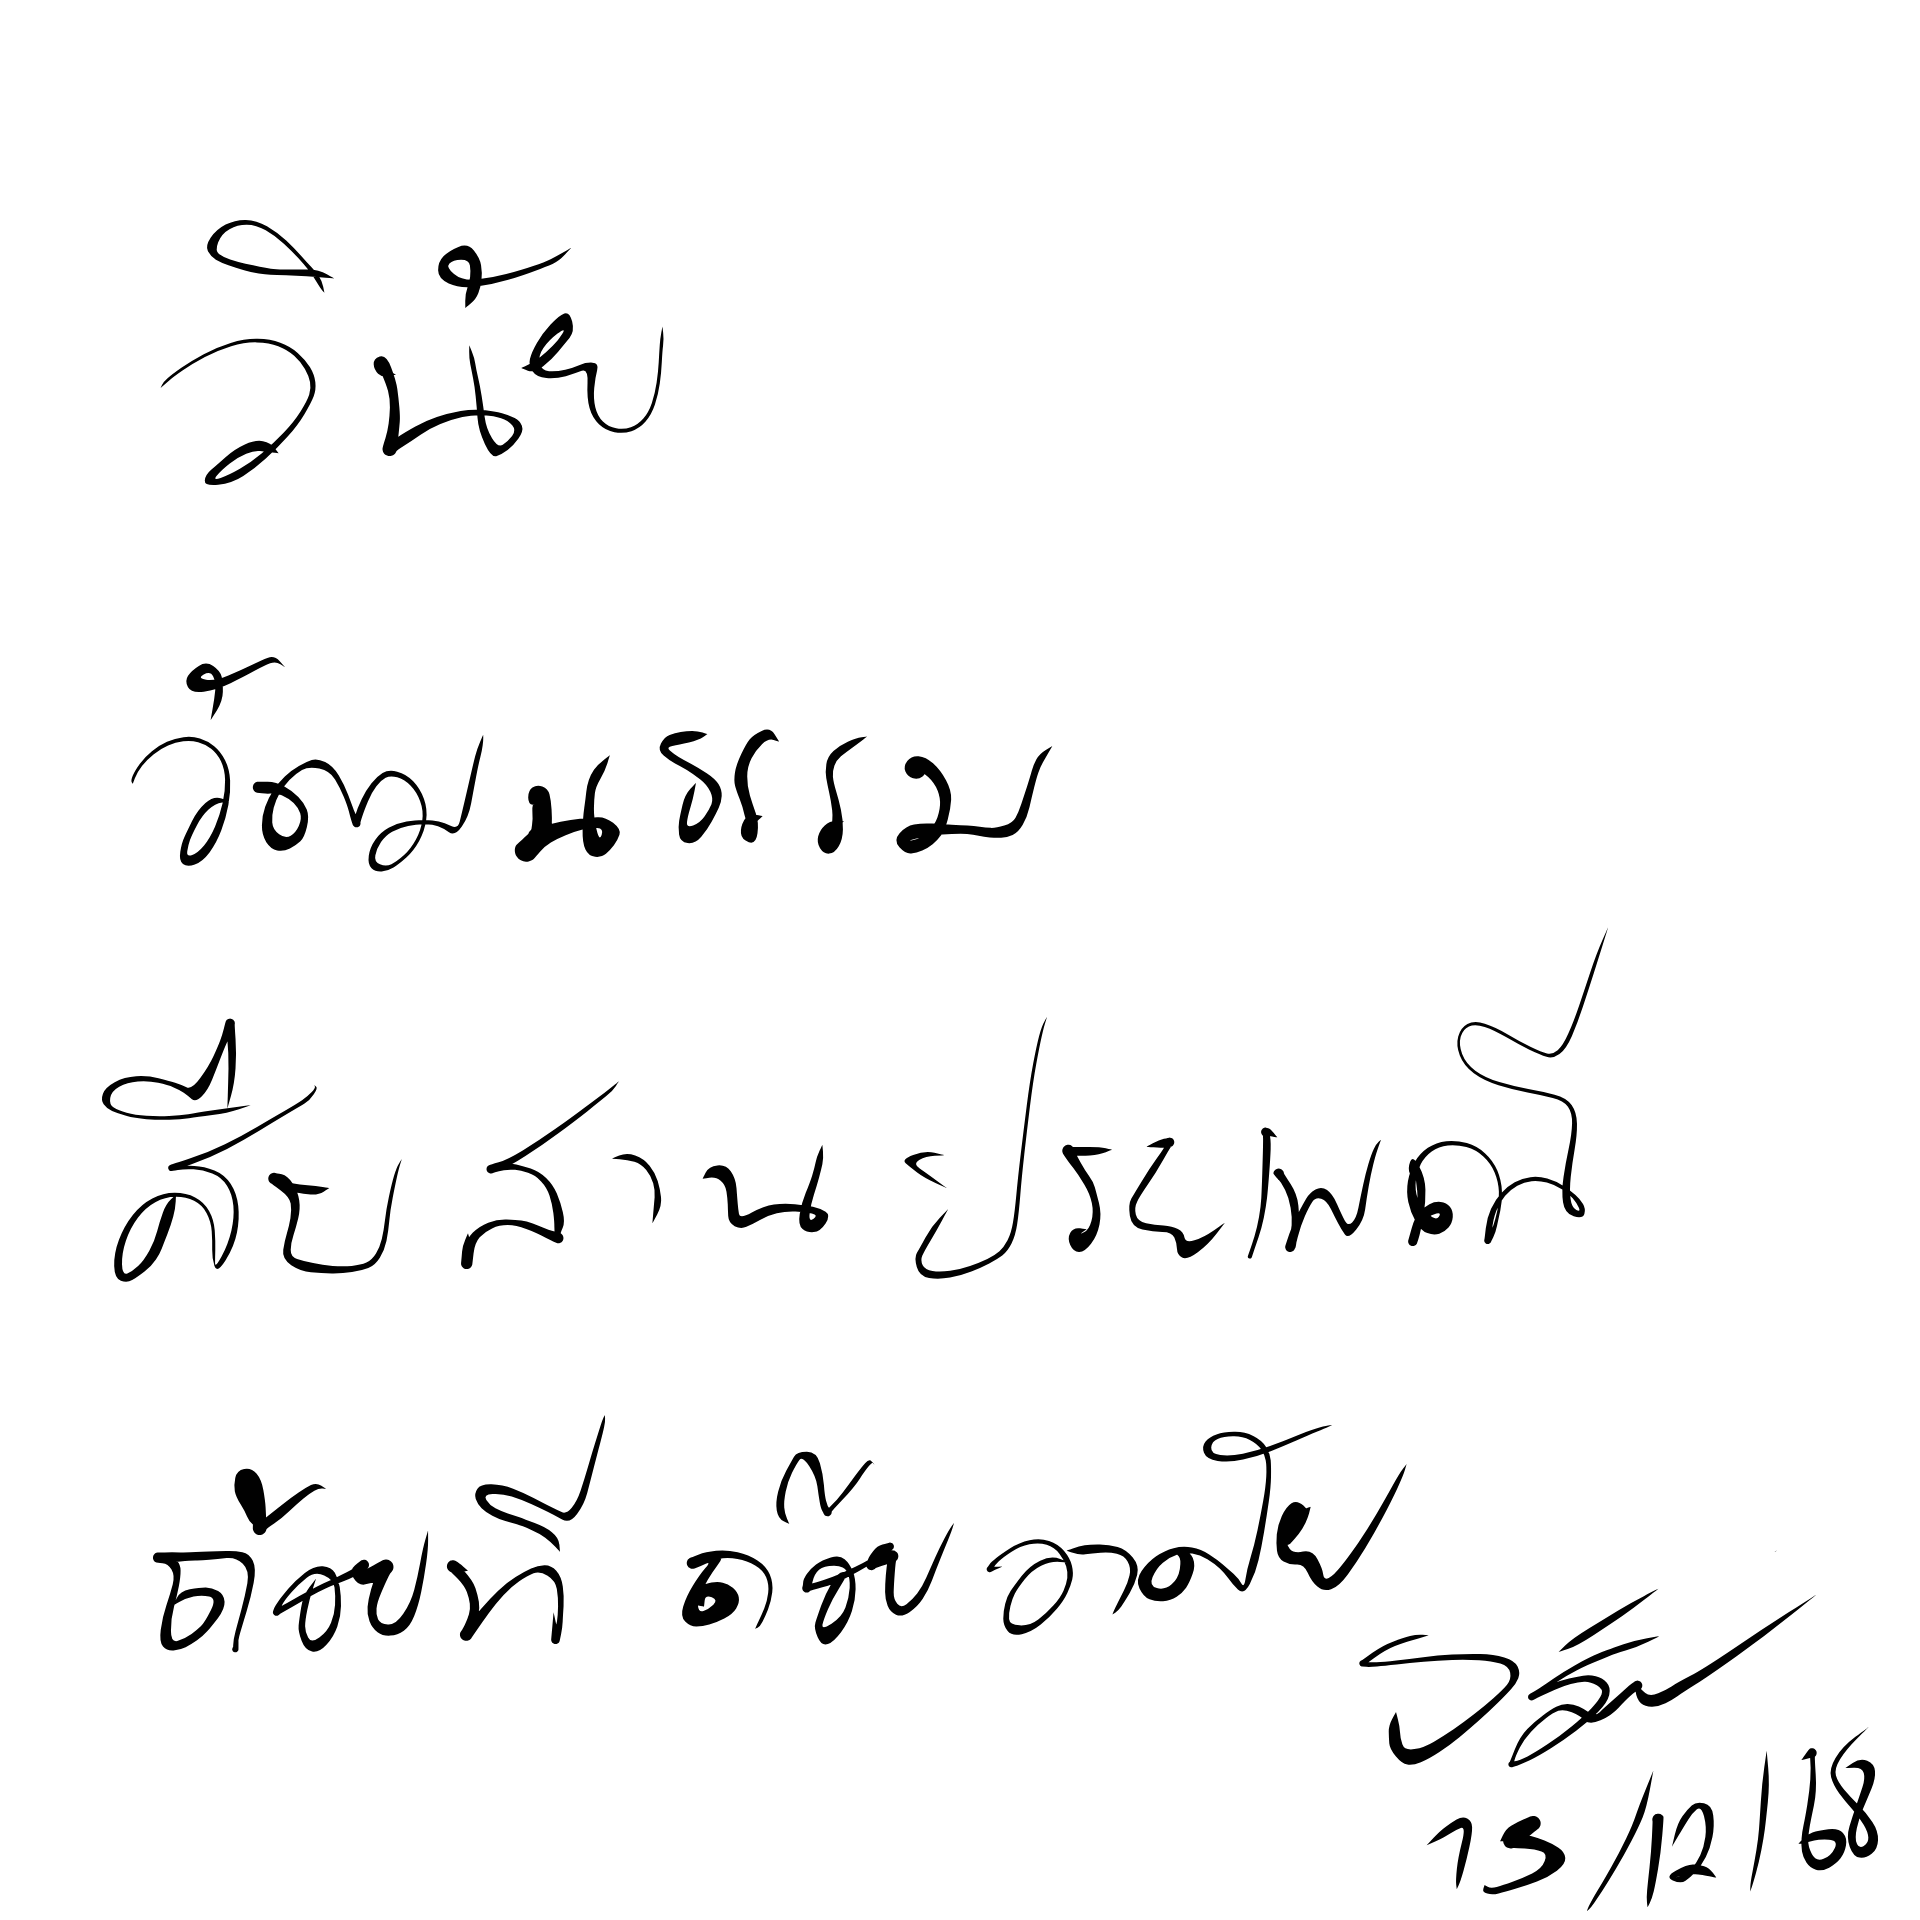 วินัย
วัฒนธรรม
สืบสานประเพณี
ถ้อยทีถ้อยอาศัย
15/12/68